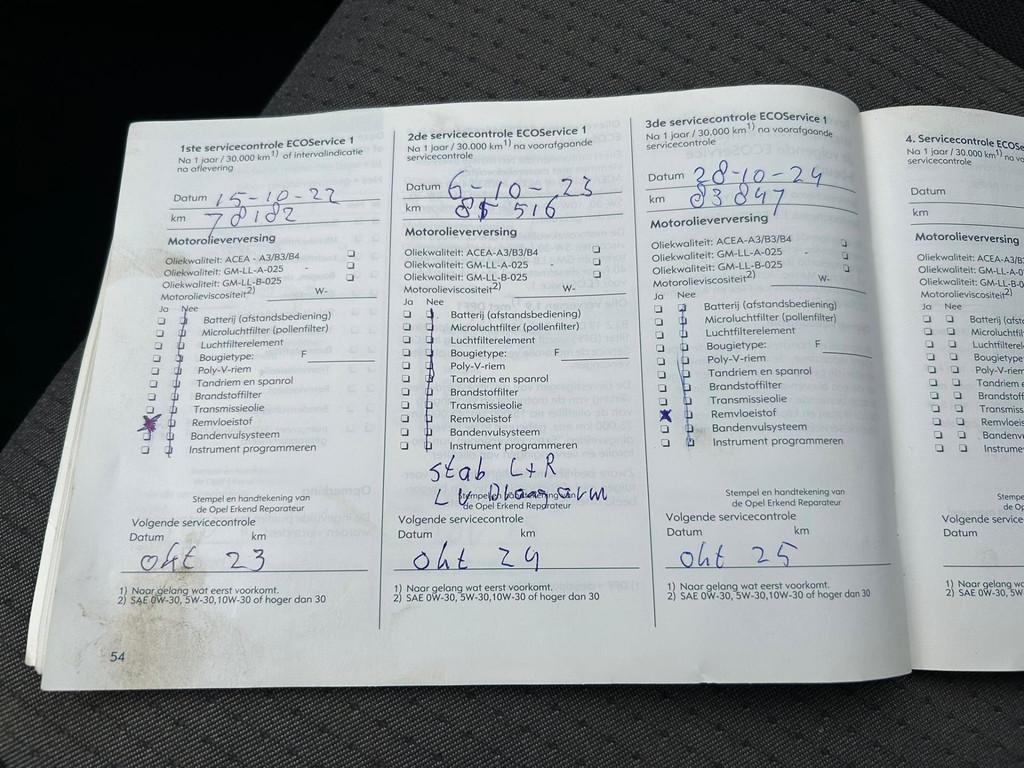 1ste servicecontrole ECOService 1
Na 1 jaar / 30.000 km1) of intervalindicatie
na aflevering
Datum 15-10-22
km 78182
Motorolieverversing
Oliekwaliteit: ACEA - A3/B3/B4
Oliekwaliteit: GM-LL-A-025
Oliekwaliteit: GM-LL-B-025
Motorolieviscositeit2) W-
Ja Nee
Batterij (afstandsbediening)
Microluchtfilter (pollenfilter)
Luchtfilterelement
Bougietype: F
Poly-V-riem
Tandriem en spanrol
Brandstoffilter
Transmissieolie
Remvloeistof
Bandenvulsysteem
Instrument programmeren
Stempel en handtekening van
de Opel Erkend Reparateur
Volgende servicecontrole
Datum km
okt 23
1) Naar gelang wat eerst voorkomt.
2) SAE 0W-30, 5W-30,10W-30 of hoger dan 30
54
2de servicecontrole ECOService 1
Na 1 jaar / 30.000 km1) na voorafgaande
servicecontrole
Datum 6-10-23
km 516
Motorolieverversing
Oliekwaliteit: ACEA-A3/B3/B4
Oliekwaliteit: GM-LL-A-025
Oliekwaliteit: GM-LL-B-025
Motorolieviscositeit2) W-
Ja Nee
Batterij (afstandsbediening)
Microluchtfilter (pollenfilter)
Luchtfilterelement
Bougietype: F
Poly-V-riem
Tandriem en spanrol
Brandstoffilter
Transmissieolie
Remvloeistof
Bandenvulsysteem
Instrument programmeren
Stab L+R
L V
Stempel en handtekening van
de Opel Erkend Reparateur
Volgende servicecontrole
Datum km
okt 24
1) Naar gelang wat eerst voorkomt.
2) SAE 0W-30, 5W-30,10W-30 of hoger dan 30
3de servicecontrole ECOService 1
Na 1 jaar / 30.000 km1) na voorafgaande
servicecontrole
Datum 28-10-24
km 83847
Motorolieverversing
Oliekwaliteit: ACEA-A3/B3/B4
Oliekwaliteit: GM-LL-A-025
Oliekwaliteit: GM-LL-B-025
Motorolieviscositeit2) W-
Ja Nee
Batterij (afstandsbediening)
Microluchtfilter (pollenfilter)
Luchtfilterelement
Bougietype: F
Poly-V-riem
Tandriem en spanrol
Brandstoffilter
Transmissieolie
Remvloeistof
Bandenvulsysteem
Instrument programmeren
Stempel en handtekening van
de Opel Erkend Reparateur
Volgende servicecontrole
Datum km
okt 25
1) Naar gelang wat eerst voorkomt.
2) SAE 0W-30, 5W-30,10W-30 of hoger dan 30
4. Servicecontrole ECOSe
Na 1 jaar / 30.000 km1) na vo
servicecontrole
Datum
km
Motorolieverversing
Oliekwaliteit: ACEA-A3
Oliekwaliteit: GM-LL-A-0
Oliekwaliteit: GM-LL-B-0
Motorolieviscositeit2)
Ja Nee
Batterij (afsta
Microluchtfil
Luchtfilterel
Bougietype
Poly-V-riem
Tandriem e
Brandstoffi
Transmiss
Remvloeis
Bandenv
Instrume
Stemp
de Op
Volgende service
Datum
1) Naar gelang wa
2) SAE 0W-30, 5W